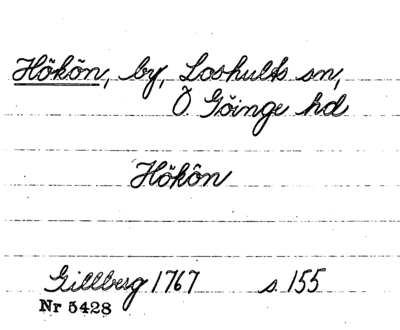 Hökön, by, Loshults sn,
Ö Göinge hd
Hökön
Gillberg 1767 s. 155
Nr 5428